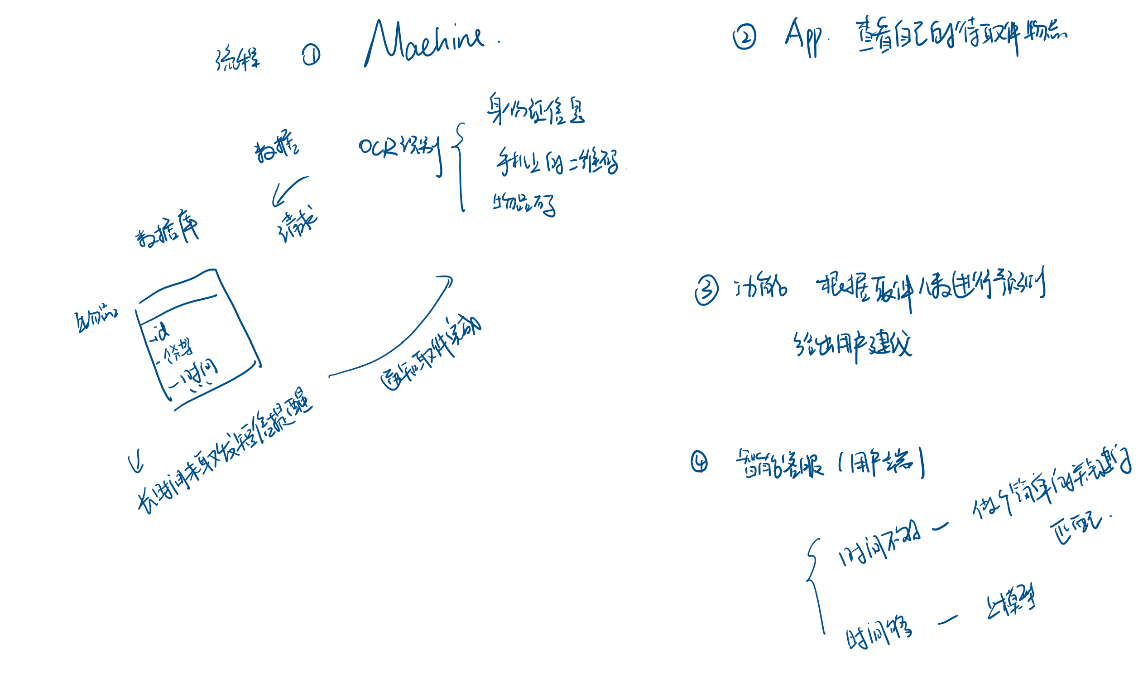 流程 ① Machine.
数据
OCR识别
身份证信息
手机上的二维码
物品码
请求
数据库
物品
-id
-货架
-时间
...
长时间未取发短信提醒
通知取件完成
② App. 查看自己的待取件物品
③ 功能 根据取件人数进行预测
给出用户建议
④ 智能客服(用户端)
时间不够 — 做个简单的关键词
匹配.
时间够 — 上模型